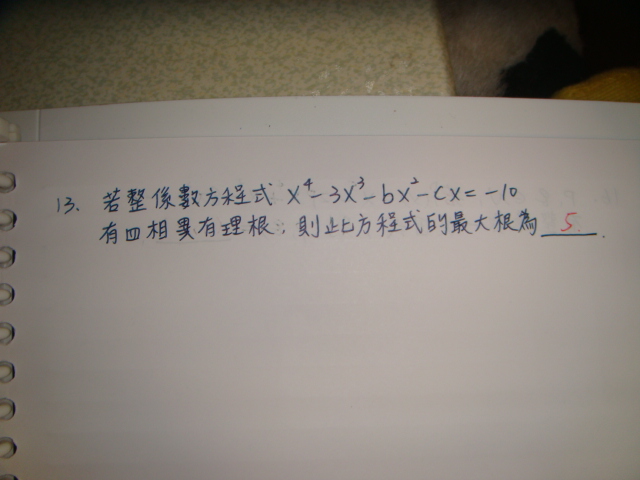 13. 若整係數方程式 x⁴-3x³-bx²-cx=-10
有四相異有理根，則此方程式的最大根為 5 .